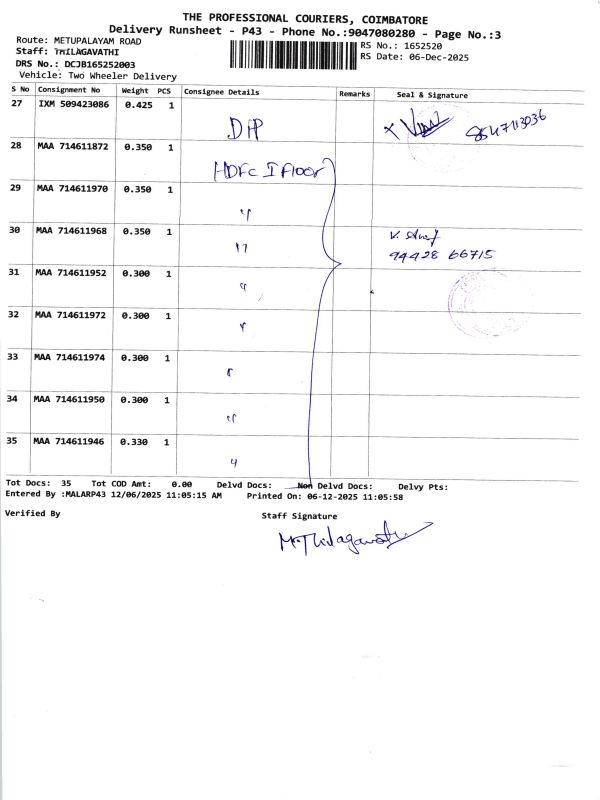 THE PROFESSIONAL COURIERS, COIMBATORE
Delivery Runsheet - P43 - Phone No.:9047080280 - Page No.:3
Route: METUPALAYAM ROAD
RS No.: 1652520
Staff: THILAGAVATHI
RS Date: 06-Dec-2025
DRS No.: DCJB165252003
Vehicle: Two Wheeler Delivery
S No Consignment No Weight PCS Consignee Details Remarks Seal & Signature
27 IXM 509423086 0.425 1 8547113036
28 MAA 714611872 0.350 1 HDFC I Floor
29 MAA 714611970 0.350 1 "
30 MAA 714611968 0.350 1 "
94428 66715
31 MAA 714611952 0.300 1 "
32 MAA 714611972 0.300 1 "
33 MAA 714611974 0.300 1 "
34 MAA 714611950 0.300 1 "
35 MAA 714611946 0.330 1 "
Tot Docs: 35 Tot COD Amt: 0.00 Delvd Docs: Non Delvd Docs: Delvy Pts:
Entered By :MALARP43 12/06/2025 11:05:15 AM Printed On: 06-12-2025 11:05:58
Verified By Staff Signature
M.Thilagavathi